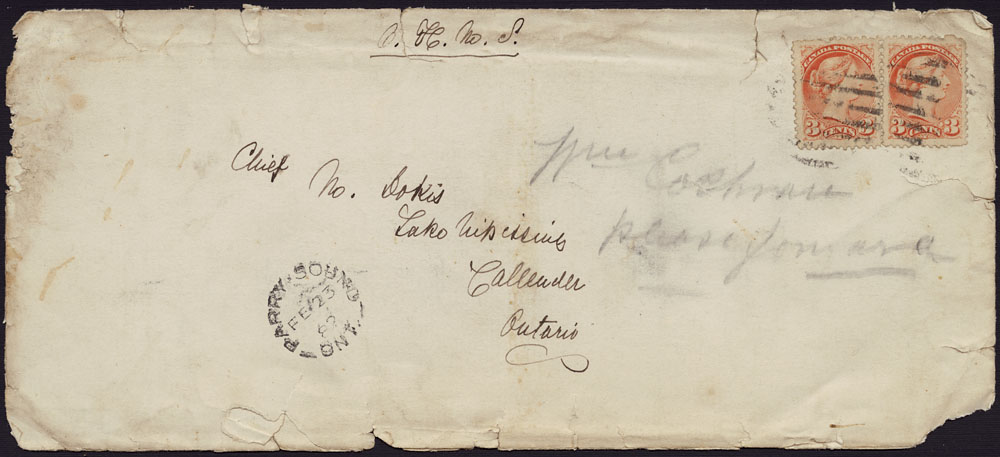 O. H. M. S.
CANADA POSTAGE CANADA POSTAGE
3 CENTS 3 3 CENTS 3
Chief
M. Dokis
Lake Nipissing
Callender
Ontario
Wm
Cochrane
please forward
PARRY-SOUND
FE 23
ONT.